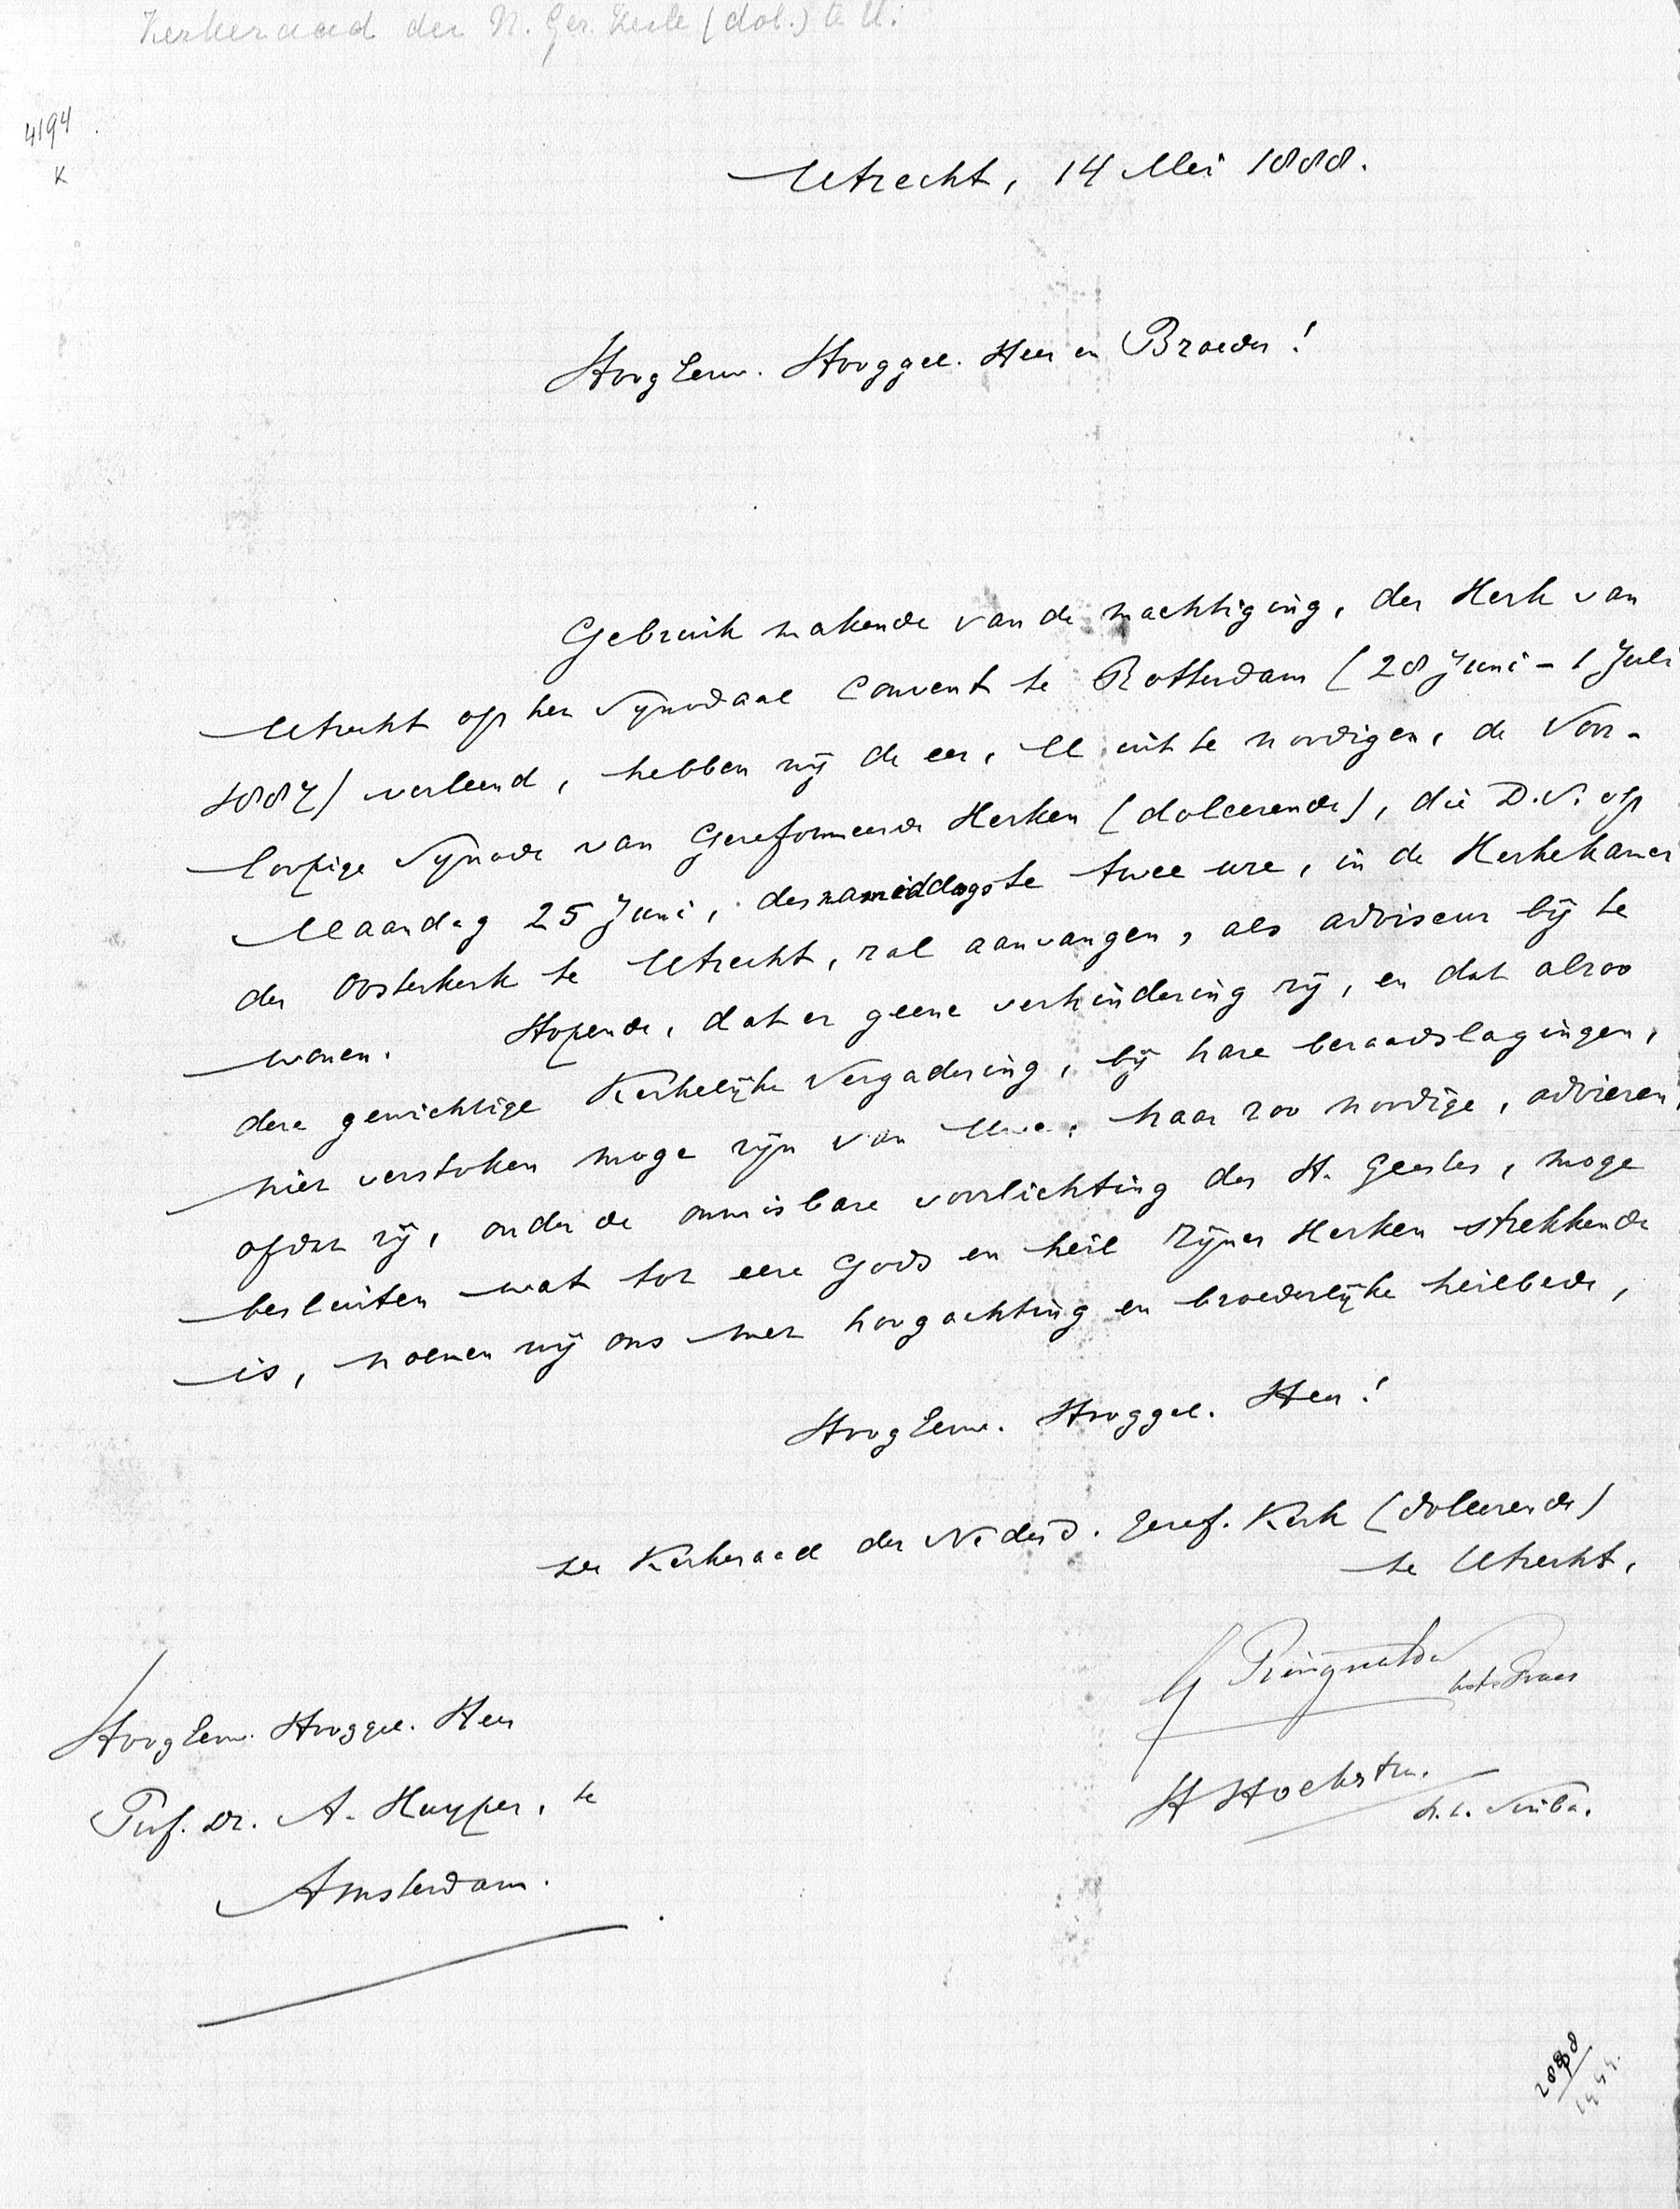 Kerkeraad der N. Ger. Kerk (dol.) te U.
4194
K
Utrecht, 14 Mei 1888.
HoogEerw. Hooggel. Heer en Broeder!
Gebruik makende van de machtiging, der Kerk van
Utrecht op het Synodaal Convent te Rotterdam (28 Juni - 1 Juli
1887) verleend, hebben wij de eer, U uit te noodigen, de Voor-
loopige Synode van Gereformeerde Kerken (doleerende), die D.V. op
Maandag 25 Juni, des namiddags te twee ure, in de Kerkekamer
der Oosterkerk te Utrecht, zal aanvangen, als adviseur bij te
wonen. Hopende, dat er geene verhindering zij, en dat alzoo
deze gewichtige Kerkelijke Vergadering, bij hare beraadslagingen,
niet verstoken moge zijn van Uwe, haar zoo noodige, adviezen,
opdat zij, onder de onmisbare voorlichting des H. Geestes, moge
besluiten wat tot eere Gods en heil Zijner Kerken strekkende
is, noemen wij ons met hoogachting en broederlijke heilbede,
HoogEerw. Hooggel. Heer!
De Kerkeraad der Nederd. Geref. Kerk (doleerende)
te Utrecht,
G Ringnalda
H Hoekstra.
h.t. Scriba.
HoogEerw. Hooggel. Heer
Prof. Dr. A. Kuyper, te
Amsterdam.